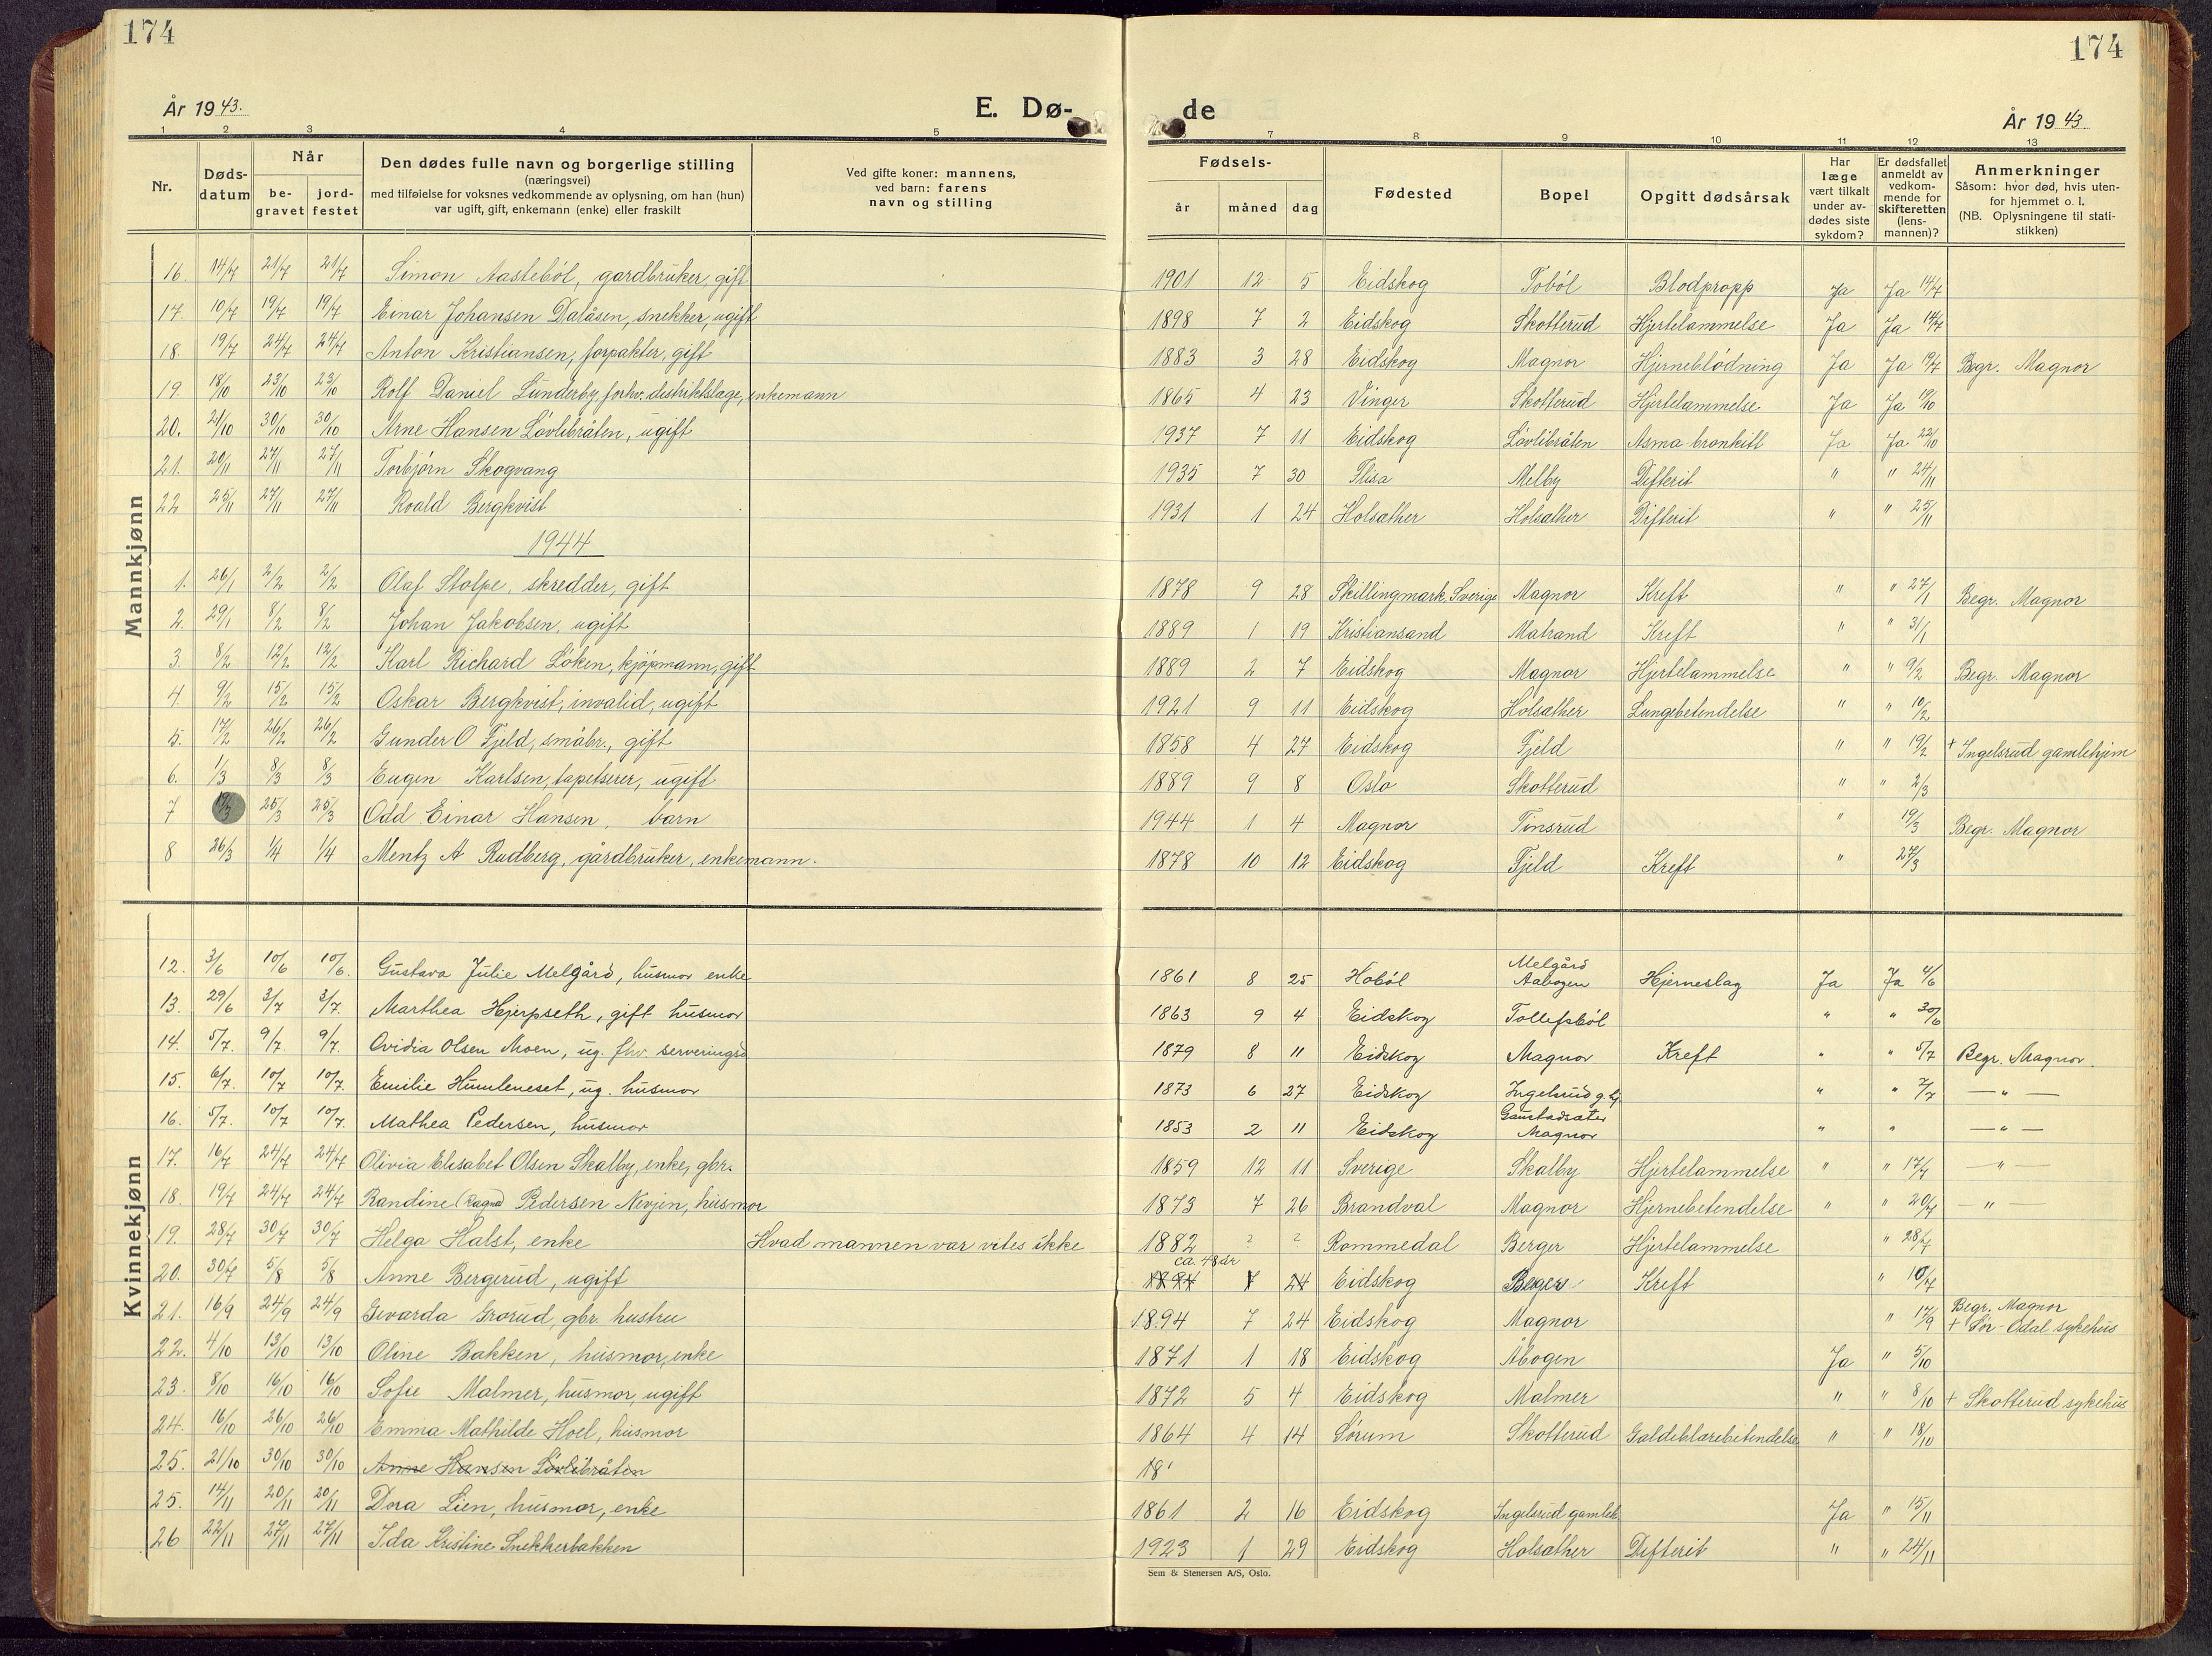 174
174
År 1943.
E. Dø-
de
År 1943
1 2 3 4 5 7 8 9 10 11 12 13
Nr.
Døds-
datum
Når
be-
gravet
jord-
festet
Den dødes fulle navn og borgerlige stilling
(næringsvei)
med tilføielse for voksnes vedkommende av oplysning, om han (hun)
var ugift, gift, enkemann (enke) eller fraskilt
Ved gifte koner: mannens,
ved barn: farens
navn og stilling
Fødsels-
år
måned
dag
Fødested
Bopel
Opgitt dødsårsak
Har
læge
vært tilkalt
under av-
dødes siste
sykdom?
Er dødsfallet
anmeldt av
vedkom-
mende for
skifteretten
(lens-
mannen)?
Anmerkninger
Såsom: hvor død, hvis uten-
for hjemmet o. l.
(NB. Oplysningene til stati-
stikken)
Mannkjønn
16. 14/7 21/7 21/7 Simon Aastebøl, gardbruker, gift 1901 12 5 Eidskog Tobøl Blodpropp Ja Ja 14/7
17. 10/7 19/7 19/7 Einar Johansen Dalåsen, snekker, ugift 1898 7 2 Eidskog Skotterud Hjertelammelse Ja Ja 14/7
18. 19/7 24/7 24/7 Anton Kristiansen, forpakter, gift 1883 3 28 Eidskog Magnor Hjerneblødning Ja Ja 19/7 Begr. Magnor
19. 18/10 23/10 23/10 Rolf Daniel Lunderby, forhv. distriktslæge, enkemann 1865 4 23 Vinger Skotterud Hjertelammelse Ja Ja 19/10
20. 21/10 30/10 30/10 Arne Hansen Løvlibråten, ugift 1937 7 11 Eidskog Løvlibråten Asma bronkitt Ja Ja 22/10
21. 20/11 27/11 27/11 Torbjørn Skogvang 1935 7 30 Flisa Melby Difterit " " 24/11
22 25/11 27/11 27/11 Roald Bergkvist 1931 1 24 Holsæther Holsæther Difterit " " 25/11
1944
1. 26/1 2/2 2/2 Olaf Stolpe, skredder, gift 1878 9 28 Skillingmark, Sverige Magnor Kreft " " 27/1 Begr. Magnor
2. 29/1 8/2 8/2 Johan Jakobsen, ugift 1889 1 19 Kristiansand Matrand Kreft " " 31/1
3. 8/2 12/2 12/2 Karl Richard Løken, kjøpmann, gift 1889 2 7 Eidskog Magnor Hjertelammelse " " 9/2 Begr. Magnor
4. 9/2 15/2 15/2 Oskar Bergkvist, invalid, ugift 1921 9 11 Eidskog Holsæther Lungebetendelse " " 10/2
5. 17/2 26/2 26/2 Gunder O Fjeld, småbr., gift 1858 4 27 Eidskog Fjeld " " 19/2 + Ingelsrud gamlehjem
6. 1/3 8/3 8/3 Eugen Karlsen, tapetserer, ugift 1889 9 8 Oslo Skotterud " " 2/3
7 19/3 25/3 25/3 Odd Einar Hansen, barn 1944 1 4 Magnor Tinsrud " 19/3 Begr. Magnor
8 26/3 1/4 1/4 Mentz A Rudberg, gårdbruker, enkemann. 1878 10 12 Eidskog Fjeld Kreft " 27/3
Kvinnekjønn
12. 3/6 10/6 10/6. Gustava Julie Melgård, husmor enke 1861 8 25 Hobøl Melgård Aabogen Hjerneslag Ja Ja 4/6
13. 29/6 3/7 3/7. Marthea Hjerpseth, gift husmor 1863 9 4 Eidskog Tollefsbøl " " 30/6
14. 5/7. 9/7. 9/7. Ovidia Olsen Moen, ug. fhv. serveringsd 1879 8 11 Eidskog Magnor Kreft " " 5/7 Begr. Magnor.
15. 6/7. 10/7 10/7. Emilie Humleneset, ug. husmor 1873 6 27 Eidskog Ingelsrud g.hj. " " 7/7 — " —
16. 5/7. 10/7 10/7. Mathea Pedersen, husmor 1853 2 11 Eidskog Gaustadsæter Magnor " " — " —
17. 16/7 24/7 24/7 Olivia Elisabet Olsen Skalby, enke, gbr. 1859 12 11 Sverige Skalby Hjertelammelse " " 17/7 — " —
18. 19/7 24/7 24/7 Randine (Ragna) Pedersen Nevjen, husmor 1873 7 26 Brandval Magnor Hjernebetendelse " " 20/7 — " —
19. 28/7 30/7 30/7 Helga Halst, enke Hvad mannen var vites ikke 1882 ? ? Rommedal Berger Hjertelammelse " 28/7
ca. 48 år
20. 30/7 5/8 5/8 Anne Bergerud, ugift 1894 7 24 Eidskog Berger Kreft " 10/7
21. 16/9 24/9 24/9 Gevarda Grorud, gbr. hustru 1894 7 24 Eidskog Magnor " 17/9 Begr. Magnor + Sør-Odal sykehus
22. 4/10 13/10 13/10 Oline Bakken, husmor, enke 1871 1 18 Eidskog Åbogen Ja " 5/10
23. 8/10 16/10 16/10 Sofie Malmer, husmor, ugift 1872 5 4 Eidskog Malmer " " 8/10 + Skotterud sykehus
24. 16/10 26/10 26/10 Emma Mathilde Hoel, husmor 1864 4 14 Sørum Skotterud Galdeblærebetendelse " " 18/10
25. 21/10 30/10 30/10 Anne Hansen Løvlibråten 18
25. 14/11 20/11 20/11 Dora Lien, husmor, enke 1861 2 16 Eidskog Ingelsrud gamleh. Ja " 15/11
26 22/11 27/11 27/11 Ida Kristine Snekkerbakken 1923 1 29 Eidskog Holsæther Difterit " " 24/11
Sem & Stenersen A/S, Oslo.